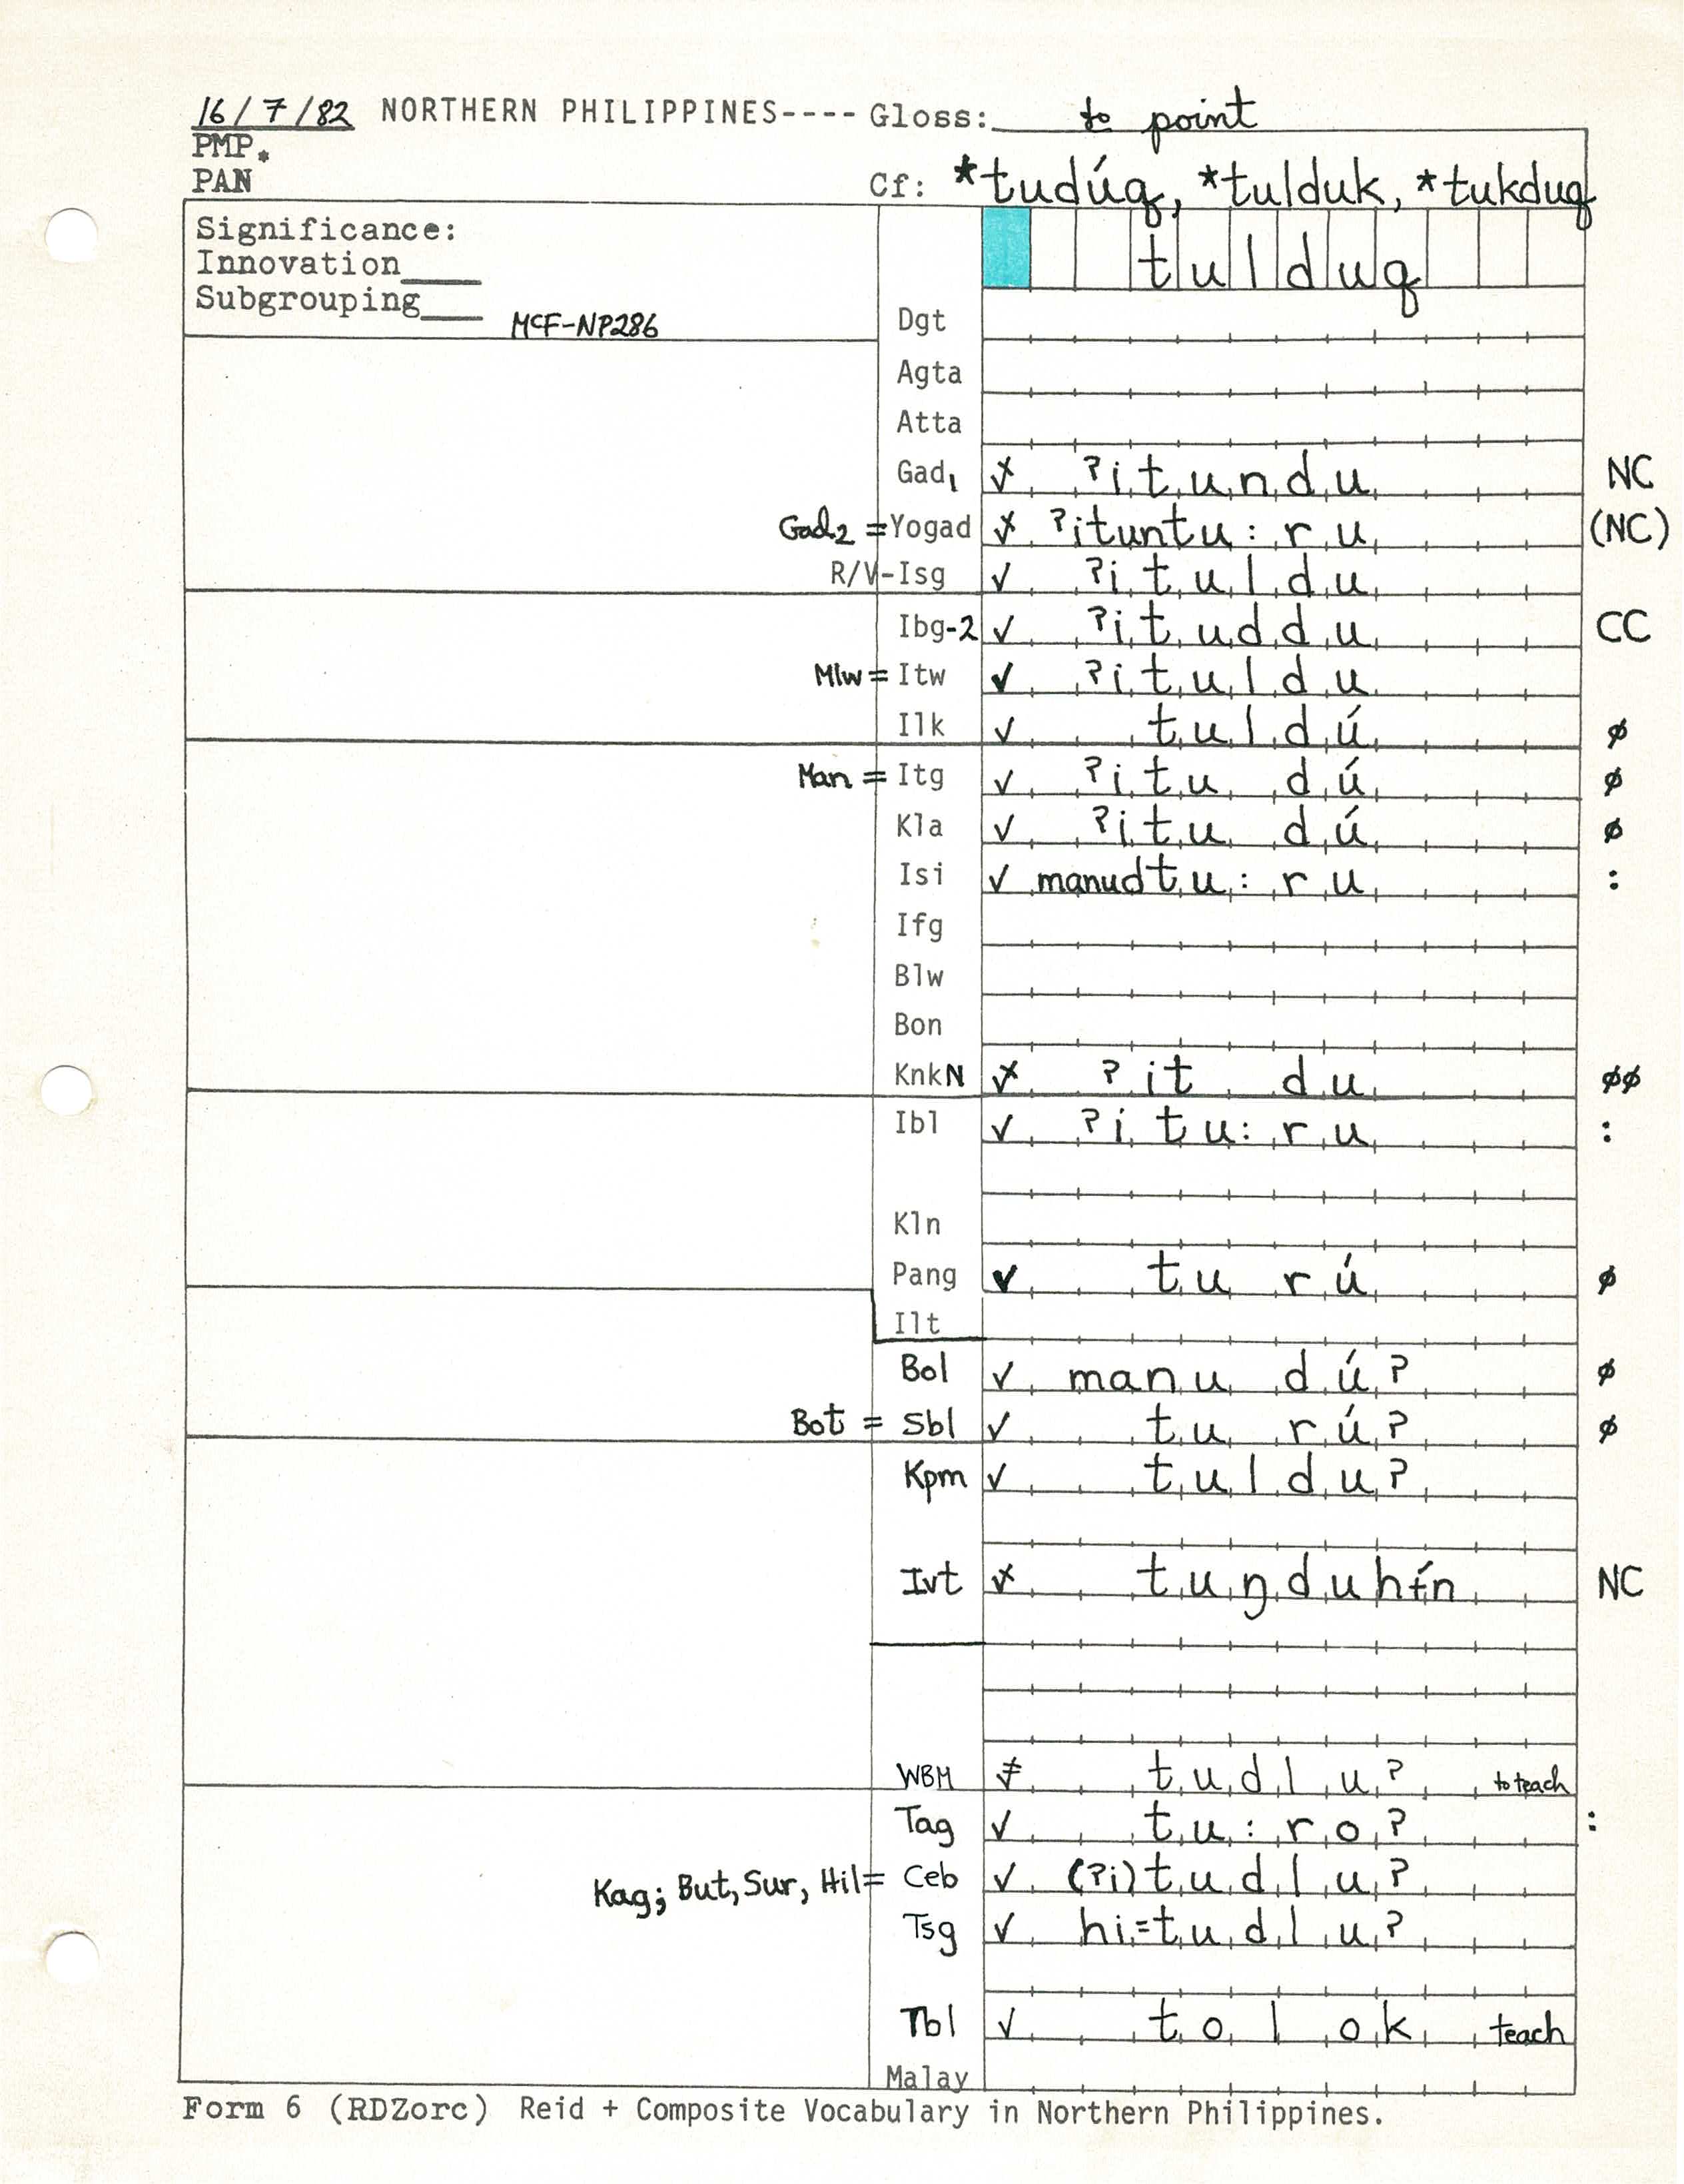 16/7/82 NORTHERN PHILIPPINES---- Gloss: to point
PMP.
PAN Cf: *tudúq, *tulduk, *tukduq
Significance:
Innovation____
Subgrouping____ McF-NP286
tulduq
Dgt
Agta
Atta
Gad1 ✓x ?itundu NC
Gad.2 = Yogad ✓x ?ituntu:ru (NC)
R/V-Isg ✓ ?ituldu
Ibg-2 ✓ ?ituddu CC
Mlw = Itw ✓ ?ituldu
Ilk ✓ tuldú ø
Man = Itg ✓ ?itu dú ø
Kla ✓ ?itu dú ø
Isi ✓ manudtu:ru :
Ifg
Blw
Bon
KnkN ✓x ?it du øø
Ibl ✓ ?itu:ru :
Kln
Pang ✓ tu rú ø
Ilt
Bol ✓ manu dú? ø
Bot = Sbl ✓ tu rú? ø
Kpm ✓ tuldu?
Ivt ✓x tuŋduhɨ́n NC
WBM ≠ tudlu? to teach
Tag ✓ tu:ro? :
Kag; But, Sur, Hil = Ceb ✓ (?i)tudlu?
Tsg ✓ hi=tudlu?
Tbl ✓ tolok teach
Malay
Form 6 (RDZorc) Reid + Composite Vocabulary in Northern Philippines.